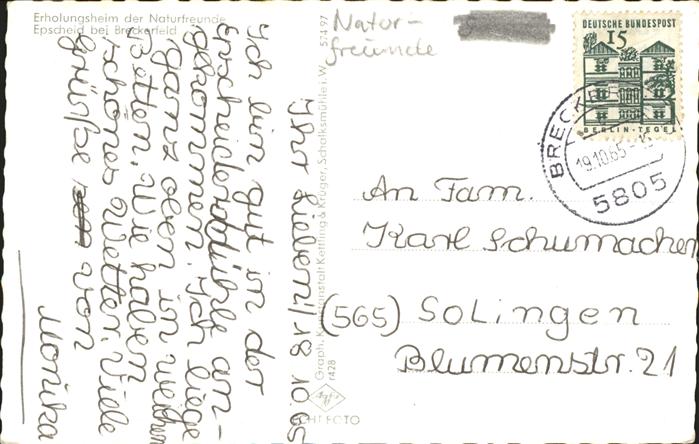 Erholungsheim der Naturfreunde
Epscheid bei Breckerfeld
Natur-
freunde
51497
Ihr Lieben! 18.10.65
Ich bin gut in der
Epscheider Mühle an-
gekommen. Ich liege
ganz oben in weichen
Betten. Wir haben
schönes Wetter. Viele
Grüße von
Monika
Graph. Kunstanstalt Kettling & Krüger, Schalksmühle i. W.
r428
Agfa
ECHT FOTO
DEUTSCHE BUNDESPOST
15
BERLIN-TEGEL
19.10.65
5805
An Fam.
Karl Schumacher
(565) Solingen
Blumenstr. 21